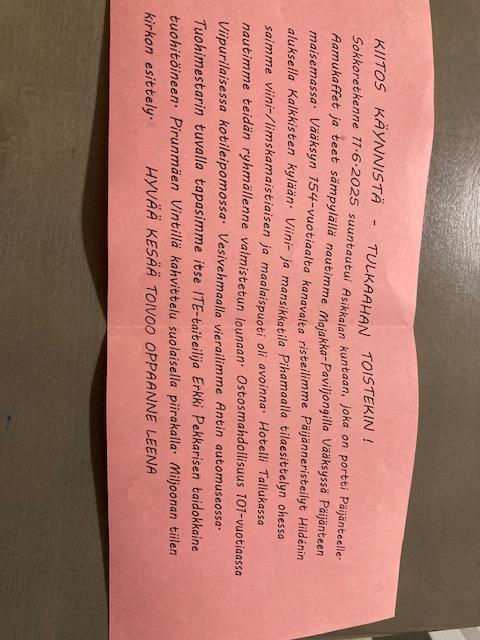 KIITOS KÄYNNISTÄ - TULKAAHAN TOISTEKIN !
Sokkoretkenne 11.6.2025 suuntautui Asikkalan kuntaan, joka on portti Päijänteelle.
Aamukaffet ja teet sämpylällä nautimme Majakka-Paviljongilla Vääksyssä Päijänteen
maisemassa. Vääksyn 154-vuotiaalta kanavalta risteilimme Päijänneristeilyt Hildénin
aluksella Kalkkisten kylään. Viini- ja mansikkatila Pihamaalla tilaesittelyn ohessa
saimme viini-/limskamaistiaisen ja maalaispuoti oli avoinna. Hotelli Tallukassa
nautimme teidän ryhmällenne valmistetun lounaan. Ostosmahdollisuus 101-vuotiaassa
Viipurilaisessa kotileipomossa. Vesivehmaalla vierailimme Antin automuseossa.
Tuohimestarin tuvalla tapasimme itse ITE-taiteilija Erkki Pekkarisen taidokkaine
tuohitöineen. Pirunmäen Vintillä kahvittelu suolaisella piirakalla. Miljoonan tiilen
kirkon esittely. HYVÄÄ KESÄÄ TOIVOO OPPAANNE LEENA